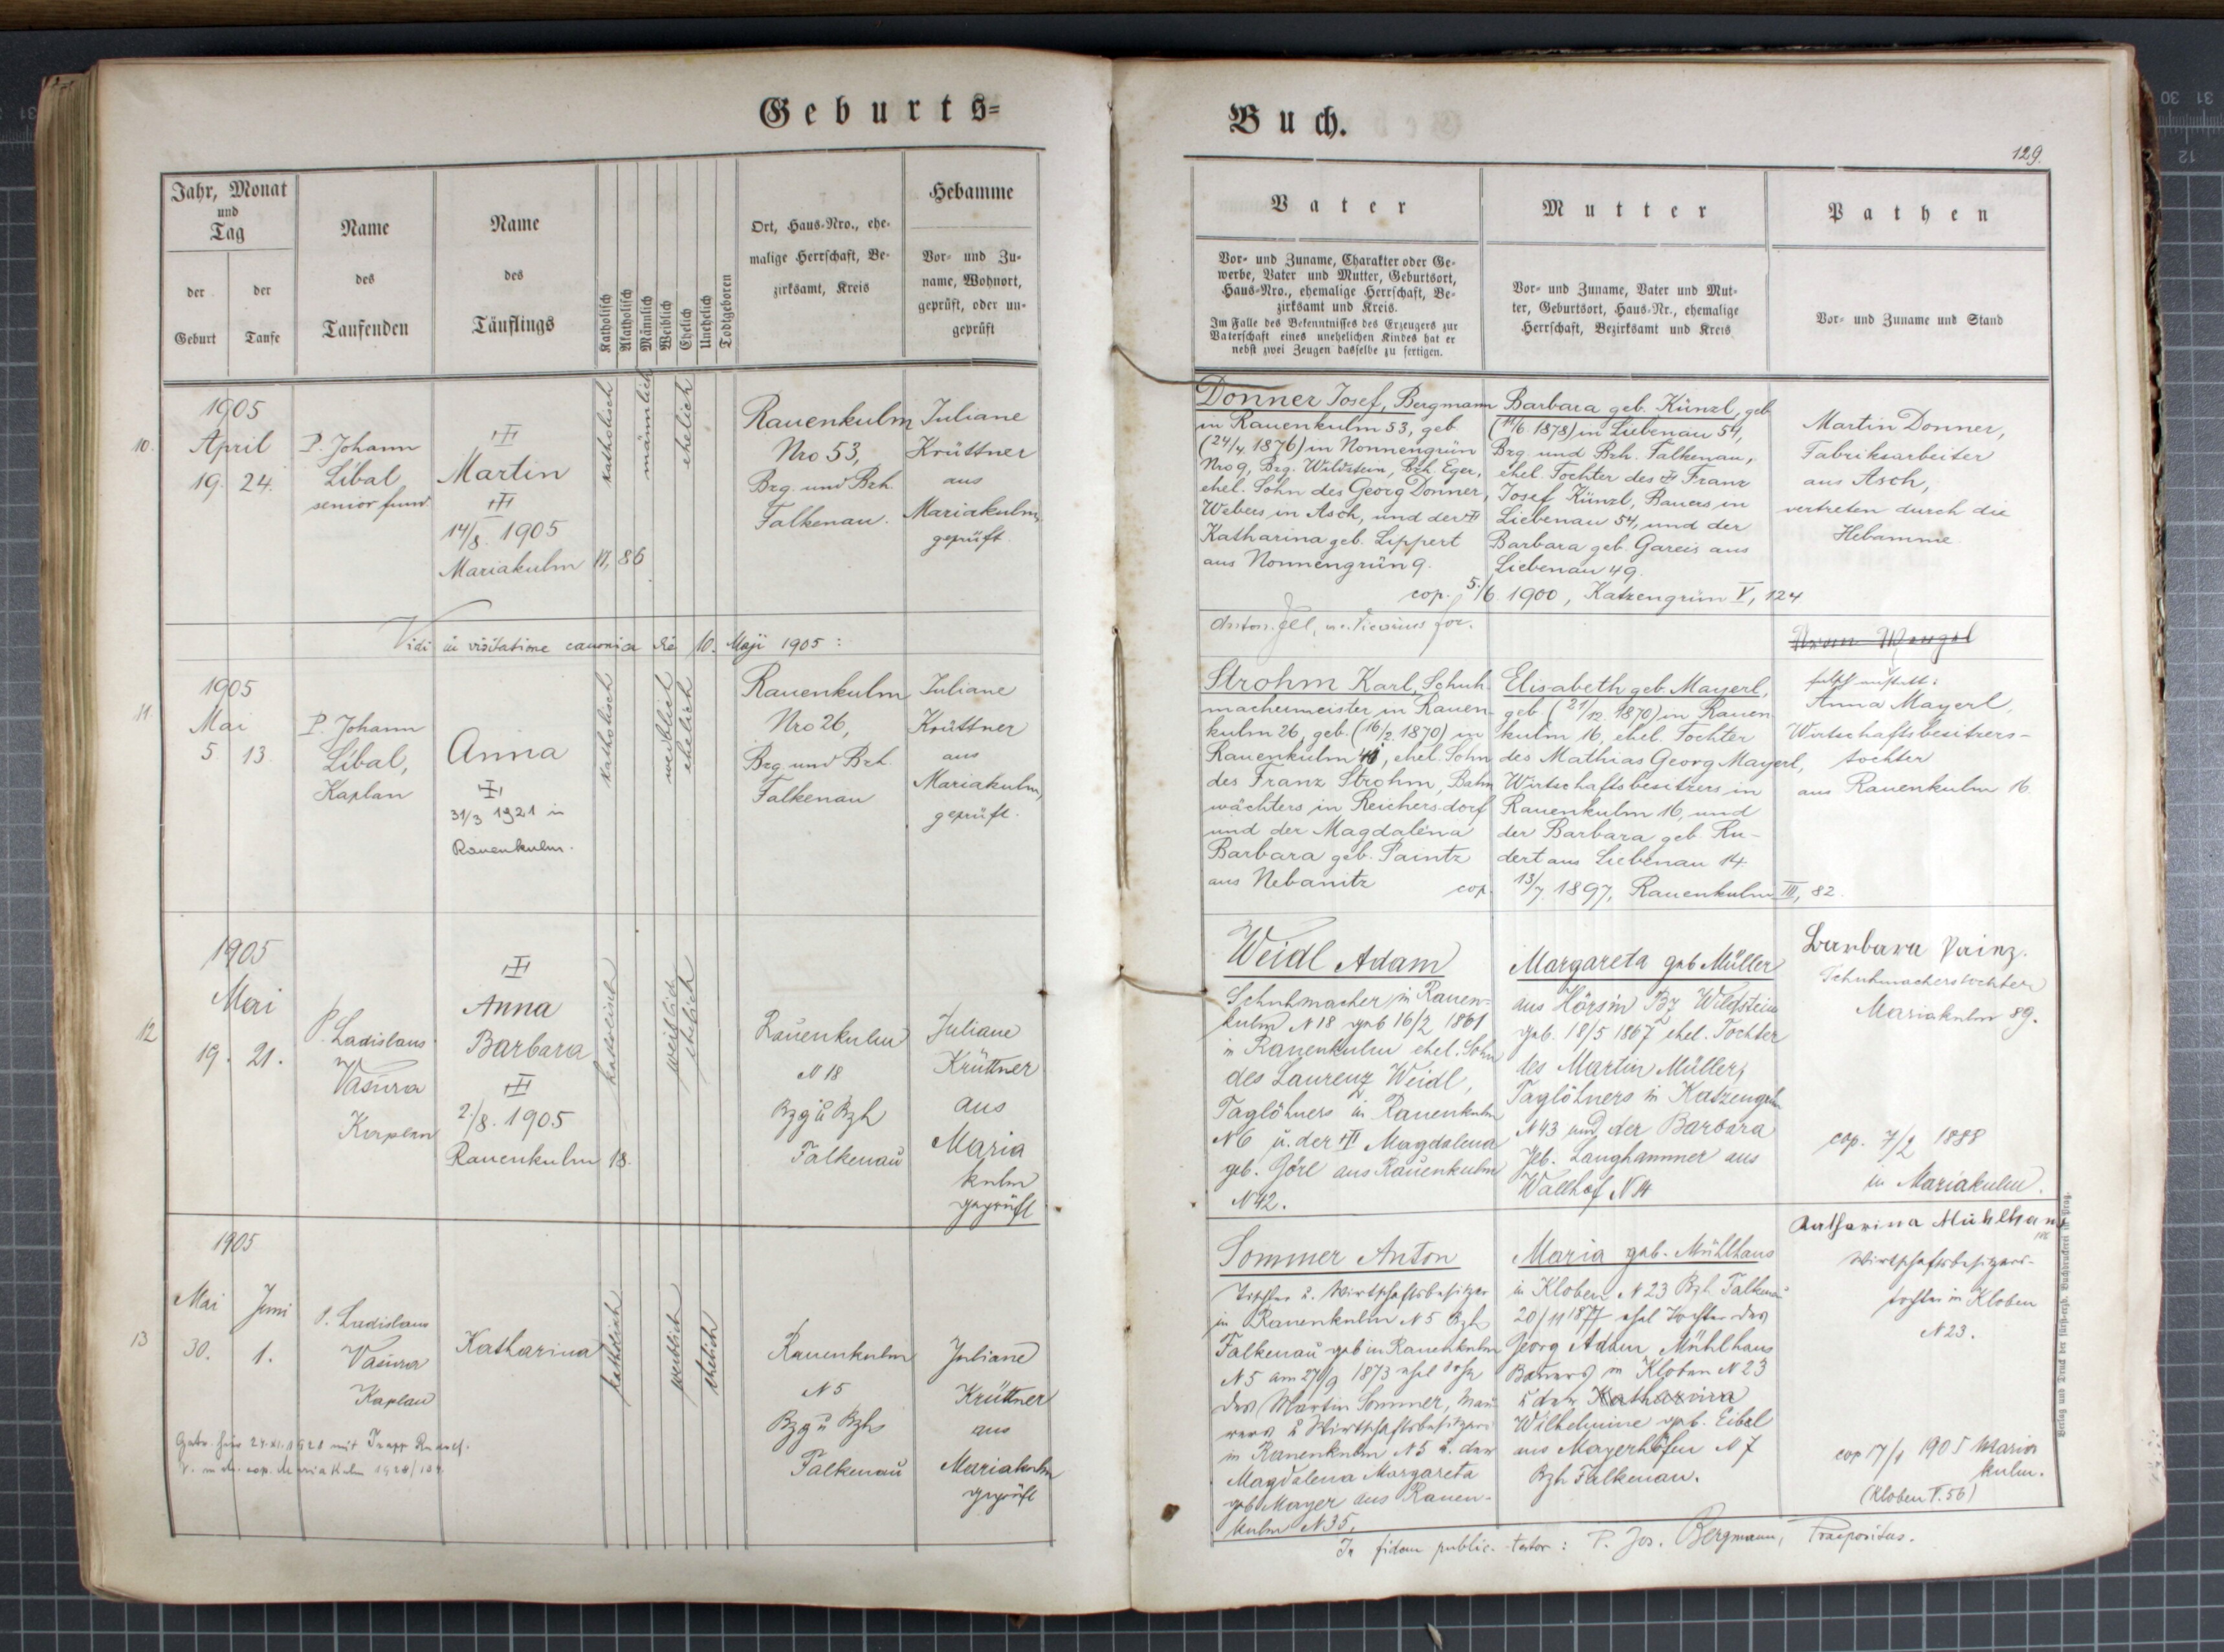 Geburts=
Buch.
129.
Jahr, Monat
und
Tag
der
Geburt
der
Taufe
Name
des
Taufenden
Name
des
Täuflings
Katholisch
Akatholisch
Männlich
Weiblich
Ehelich
Unehelich
Todtgeboren
Ort, Haus-Nro., ehe-
malige Herrschaft, Be-
zirksamt, Kreis
Hebamme
Vor- und Zu-
name, Wohnort,
geprüft, oder un-
geprüft
Vater
Vor- und Zuname, Charakter oder Ge-
werbe, Vater und Mutter, Geburtsort,
Haus-Nro., ehemalige Herrschaft, Be-
zirksamt und Kreis.
Im Falle des Bekenntnisses des Erzeugers zur
Vaterschaft eines unehelichen Kindes hat er
nebst zwei Zeugen dasselbe zu fertigen.
Mutter
Vor- und Zuname, Vater und Mut-
ter, Geburtsort, Haus-Nr., ehemalige
Herrschaft, Bezirksamt und Kreis
Pathen
Vor- und Zuname und Stand
10.
1905
April
19. 24.
P. Johann
Líbal
senior fund.
Martin
14/8. 1905
Mariakulm 11, 86
katholisch
männlich
ehelich
Rauenkulm
Nro 53,
Bzg. und Bzh.
Falkenau.
Juliane
Krüttner
aus
Mariakulm,
geprüft.
Donner Josef, Bergmann
in Rauenkulm 53, geb.
(24/4. 1876) in Nonnengrün
Nro 9, Bzg. Wildstein, Bzh. Eger,
ehel. Sohn des Georg Donner,
Webers in Asch, und der
Katharina geb. Lippert
aus Nonnengrün 9.
Barbara geb. Künzl, geb.
1878) in Liebenau 54,
Bzg. und Bzh. Falkenau,
ehel. Tochter des Franz
Josef Künzl, Bauers in
Liebenau 54, und der
Barbara geb. Gareis aus
Liebenau 49.
cop. 5./6. 1900, Katzengrün V, 124
Martin Donner,
Fabriksarbeiter
aus Asch,
vertreten durch die
Hebamme
Vidi in visitatione canonica die 10. Maji 1905:
Anton
11.
1905
Mai
5 13.
P. Johann
Líbal,
Kaplan
Anna
31/3 1921 in
Rauenkulm.
katholisch
weiblich
ehelich
Rauenkulm
Nro 26,
Bzg. und Bzh.
Falkenau
Juliane
Krüttner
aus
Mariakulm,
geprüft.
Strohm Karl, Schuh-
machermeister in Rauen-
kulm 26, geb. (16/2. 1870) in
Rauenkulm, ehel. Sohn
des Franz Strohm, Bahn
wächters in Reichersdorf
und der Magdalena
Barbara geb. Paintz
aus Nebanitz
Elisabeth geb. Mayerl,
geb. (21/12. 1870) in Rauen
kulm 16, ehel. Tochter
des Mathias Georg Mayerl,
Wirtschaftsbesitzers in
Rauenkulm 16, und
der Barbara geb. Ru-
dert aus Liebenau 14.
cop. 13/7. 1897, Rauenkulm III, 82.
falsch anstatt:
Anna Mayerl,
Wirtschaftsbesitzers-
tochter
aus Rauenkulm 16.
12
1905
Mai
19. 21.
P. Ladislaus
Vašura
Kaplan
Anna
Barbara
2./8. 1905
Rauenkulm 18.
katholisch
weiblich
ehelich
Rauenkulm
N 18
Bzg ů Bzh
Falkenau
Juliane
Krüttner
aus
Maria
kulm
geprüft
Weidl Adam
Schuhmacher in Rauen-
kulm N 18 geb 16/2 1861
in Rauenkulm ehel. Sohn
des Laurenz Weidl,
Taglöhners in Rauenkulm
N 6 u. der Magdalena
geb. Görl aus Rauenkulm
N 42.
Margareta geb Müller
aus Hörsin Bz Wildstein
geb. 18/5 1867 ehel. Tochter
des Martin Müller,
Taglöhners in Katzengrün
N 43 und der Barbara
geb. Langhammer aus
Wallhof N 14
Barbara Painz.
Schuhmacherstochter
Mariakulm 89.
cop. 7/2 1888
in Mariakulm.
13
1905
Mai Juni
30. 1.
P. Ladislaus
Vašura
Kaplan
Katharina
katholisch
weiblich
ehelich
Rauenkulm
N 5
Bzg ů Bzh
Falkenau
Juliane
Krüttner
aus
Mariakulm
geprüft
Sommer Anton
Tischler u. Wirtschaftsbesitzer
in Rauenkulm N 5 Bzh
Falkenau geb in Rauenkulm
N 5 am 27/9 1873 ehel Sohn
des Martin Sommer, Mau-
rers u Wirtschaftsbesitzers
in Rauenkulm N 5 u. der
Magdalena Margareta
geb Mayer aus Rauen-
kulm N 35.
Maria geb. Mühlhans
in Kloben N 23 Bzh Falkenau
20/11 1877 ehel Tochter des
Georg Adam Mühlhans
Bauers in Kloben N 23
u der Katharina
Wilhelmine geb. Eibel
aus Mayerhöfen N 7
Bzh Falkenau.
Katharina Mühlhans
Wirtschaftsbesitzers-
tochter in Kloben
N 23.
cop 17/1 1905 Maria
kulm.
(Kloben V. 56)
In fidem public. testor: P. Jos. Bergmann, Praepositus.
Verlag und Druck der fürsterzb. Buchdruckerei in Prag.